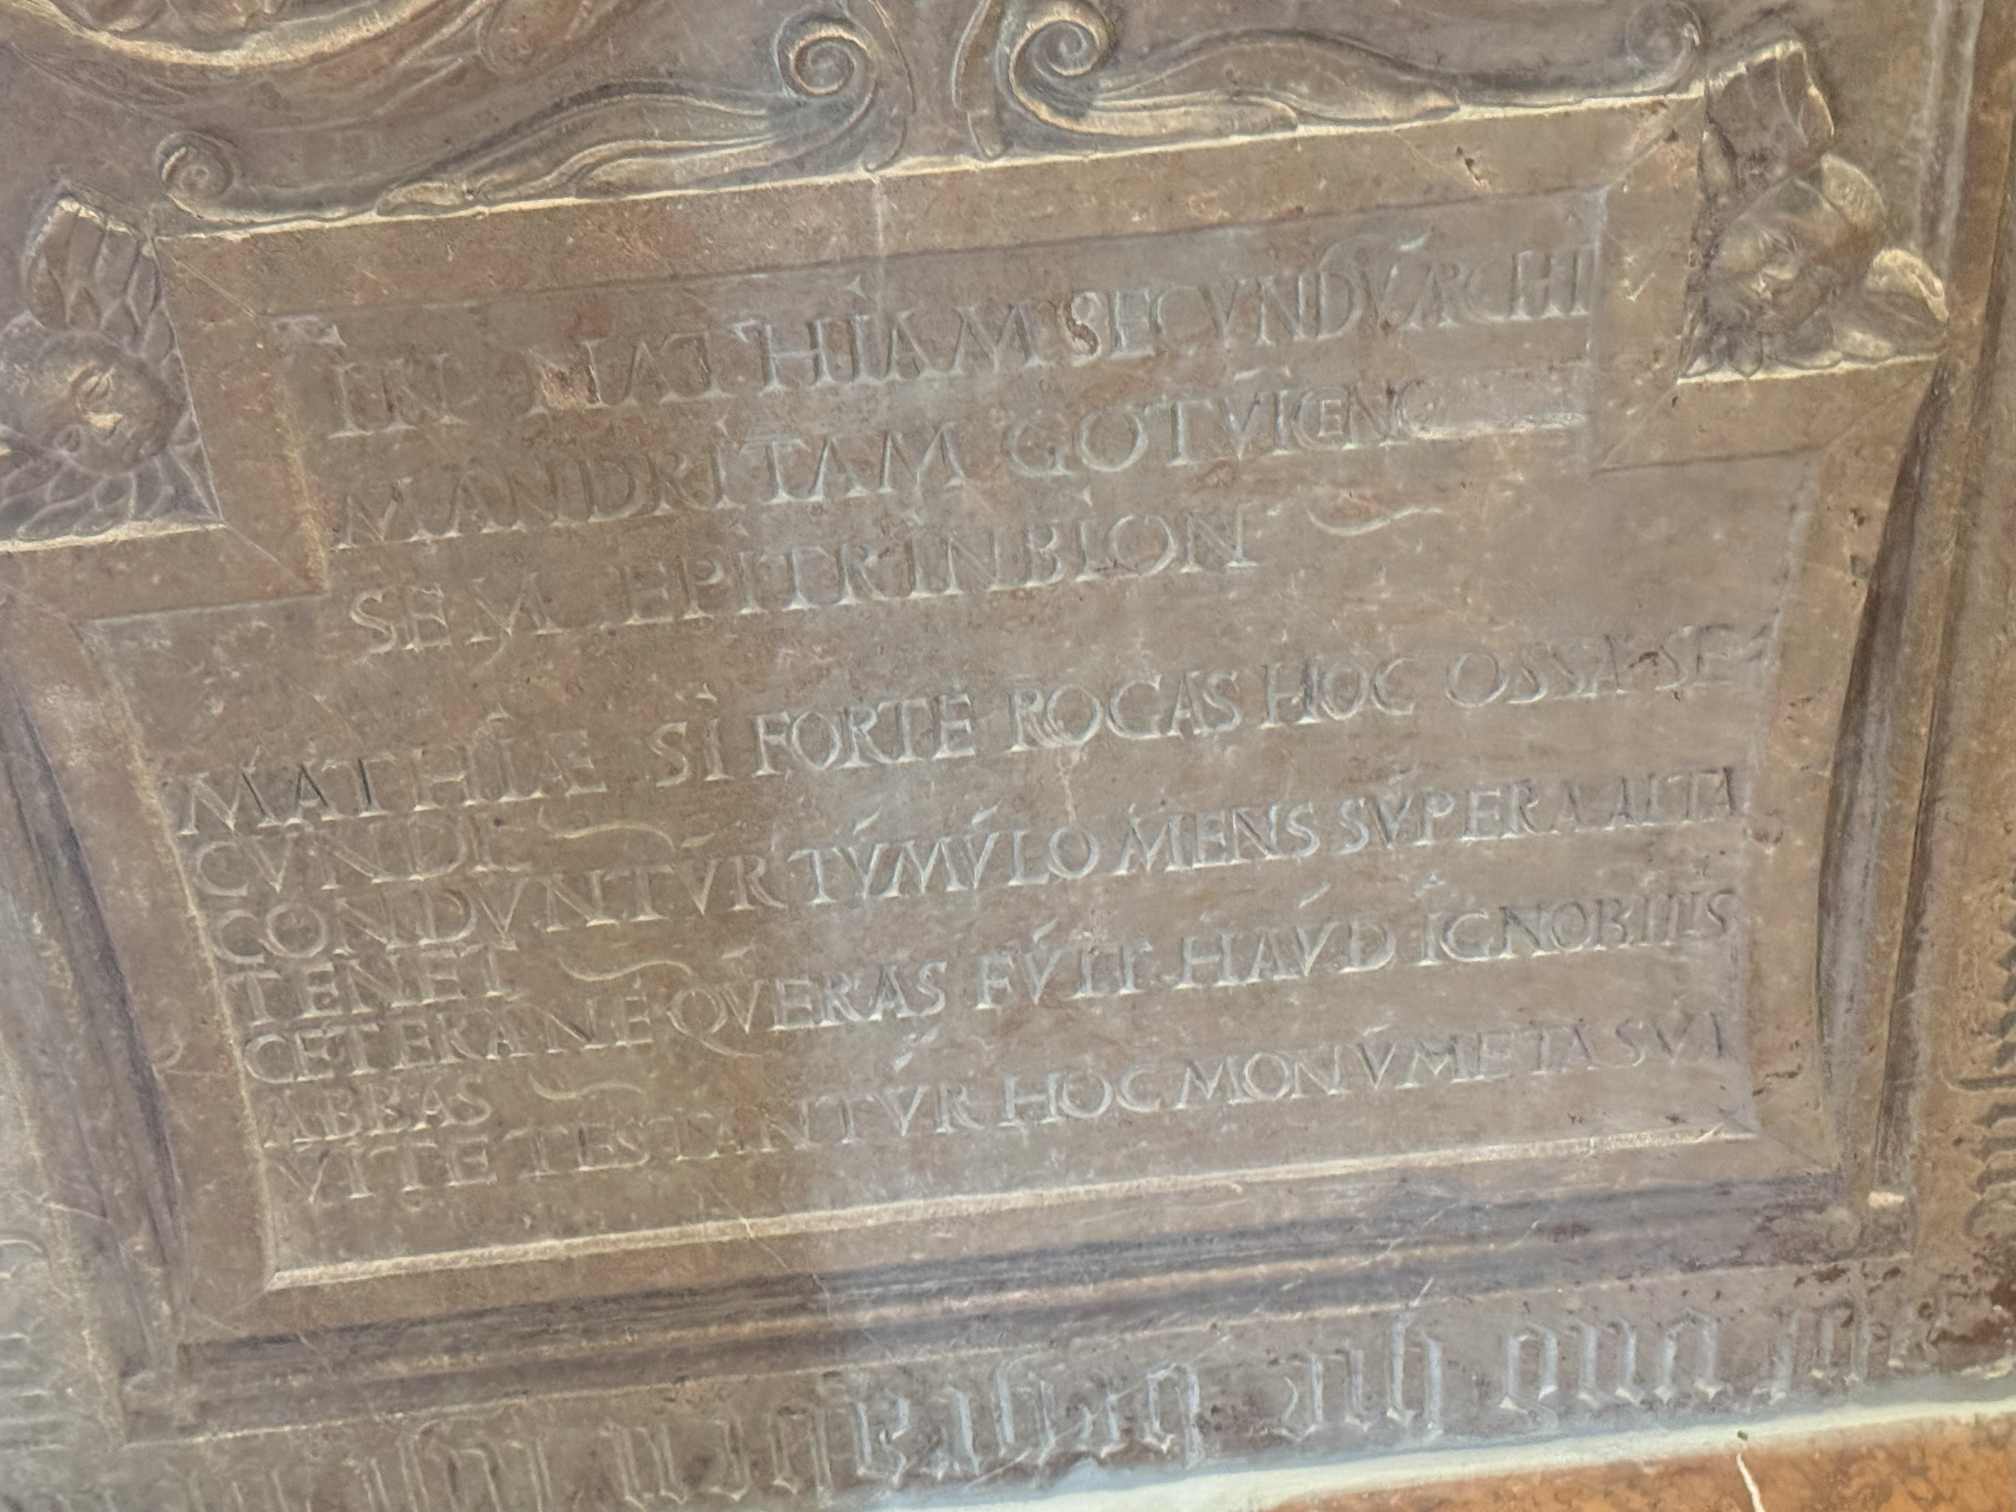 IN MATHIAM SECVNDV ARCHI
MANDRITAM GOTVICEN
SEM EPITRINBION
MATHIÆ SI FORTE ROGAS HOC OSSA SE
CVNDI
CONDVNTVR TVMVLO MENS SVPERA ALTA
TENET
CETERA NE QVERAS FVIT HAVD IGNOBILIS
ABBAS
VITE TESTANTVR HOC MONVMETA SVI